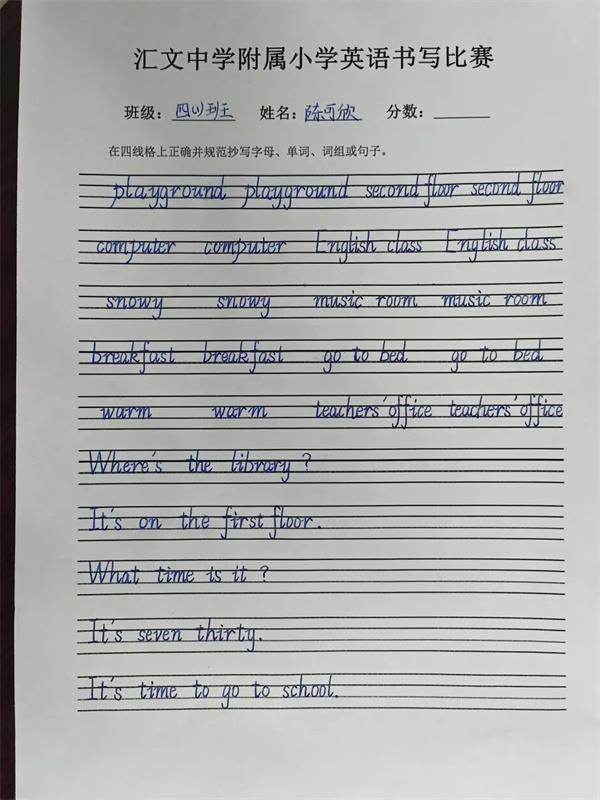 汇文中学附属小学英语书写比赛
班级：四(1)班 姓名：陈可欣 分数：
在四线格上正确并规范抄写字母、单词、词组或句子。
playground playground second floor second floor
computer computer English class English class
snowy snowy music room music room
breakfast breakfast go to bed go to bed
warm warm teachers' office teachers' office
Where's the library?
It's on the first floor.
What time is it?
It's seven thirty.
It's time to go to school.